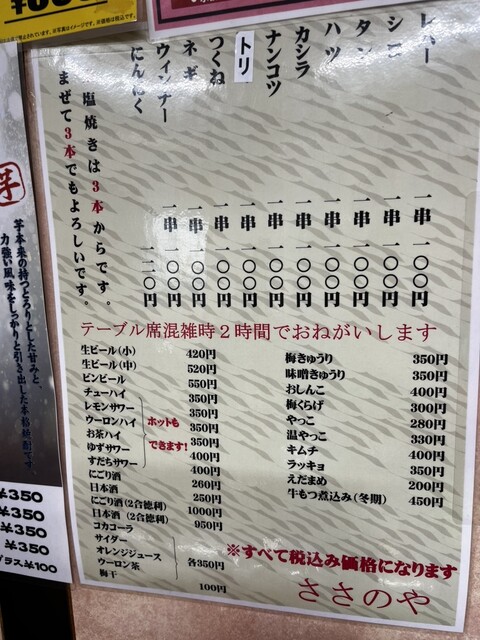 レバー 一串 一〇〇円
シロ 一串 一〇〇円
タン 一串 一〇〇円
ハツ 一串 一〇〇円
カシラ 一串 一〇〇円
ナンコツ 一串 一〇〇円
トリ 一串 一〇〇円
つくね 一串 一〇〇円
ネギ 一串 一〇〇円
ウィンナー 一串 一〇〇円
にんにく 一二〇円
塩焼きは3本からです。
まぜて3本でもよろしいです。
テーブル席混雑時2時間でおねがいします
生ビール(小) 420円
生ビール(中) 520円
ビンビール 550円
チューハイ 350円
レモンサワー 350円
ウーロンハイ 350円
お茶ハイ 350円
ゆずサワー 400円
すだちサワー 400円
ホットも
できます!
にごり酒 260円
日本酒 250円
にごり酒(2合徳利) 1000円
日本酒(2合徳利) 950円
コカコーラ
サイダー
オレンジジュース
ウーロン茶
各350円
梅干 100円
梅きゅうり 350円
味噌きゅうり 350円
おしんこ 400円
梅くらげ 300円
やっこ 280円
温やっこ 330円
キムチ 400円
ラッキョ 350円
えだまめ 200円
牛もつ煮込み(冬期) 450円
※すべて税込み価格になります
ささのや
芋
芋本来の持つとろりとした甘みと、
力強い風味をしっかりと引き出した本格焼酎です。
¥350
¥350
¥350
¥350
グラス¥100